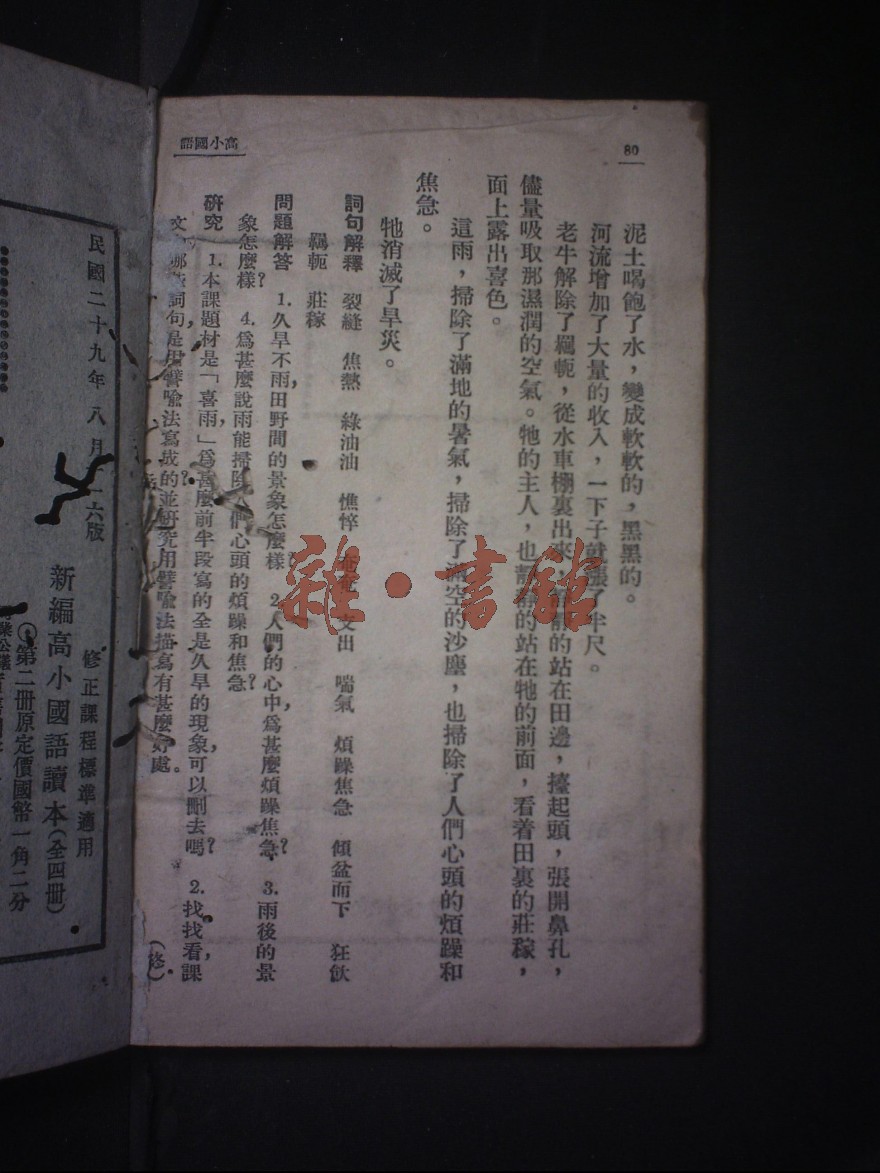 80
高小國語
泥土喝飽了水，變成軟軟的，黑黑的。
河流增加了大量的收入，一下子就漲了半尺。
老牛解除了羈軛，從水車棚裏出來，靜靜的站在田邊，擡起頭，張開鼻孔，
儘量吸取那濕潤的空氣。牠的主人，也靜靜的站在牠的前面，看着田裏的莊稼，
面上露出喜色。
這雨，掃除了滿地的暑氣，掃除了滿空的沙塵，也掃除了人們心頭的煩躁和
焦急。
牠消滅了旱災。
詞句解釋 裂縫 焦熱 綠油油 憔悴 支出 喘氣 煩躁焦急 傾盆而下 狂飲
羈軛 莊稼
問題解答 1.久旱不雨，田野間的景象怎麼樣？ 2.人們的心中，爲甚麼煩躁焦急？ 3.雨後的景
象怎麼樣？ 4.爲甚麼說雨能掃除人們心頭的煩躁和焦急？
研究 1.本課題材是「喜雨」，爲甚麼前半段寫的全是久旱的現象，可以刪去嗎？ 2.找找看，課
文哪些詞句是用譬喻法寫成的？並研究用譬喻法描寫有甚麼好處。
（終）
雜·書館
民國二十九年八月 六版
修正課程標準適用
新編高小國語讀本（全四冊）
第二冊原定價國幣一角二分